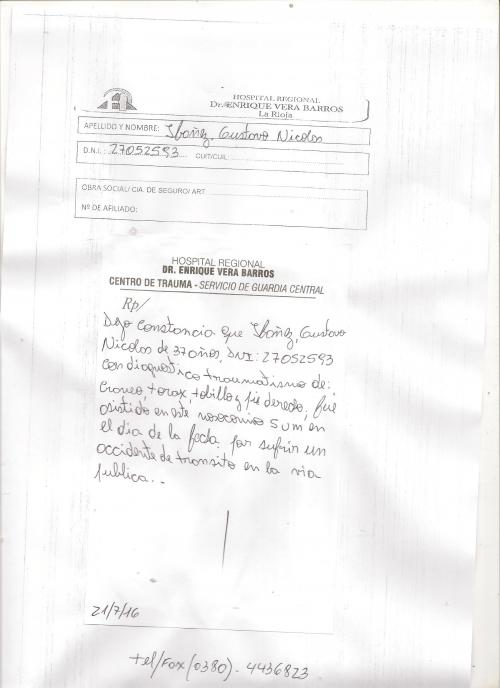 HOSPITAL REGIONAL
Dr. ENRIQUE VERA BARROS
La Rioja
APELLIDO Y NOMBRE: Ibañez, Gustavo Nicolas
D.N.I.: 27052593 CUIT/CUIL:
OBRA SOCIAL/ CIA. DE SEGURO/ ART
Nº DE AFILIADO:
HOSPITAL REGIONAL
DR. ENRIQUE VERA BARROS
CENTRO DE TRAUMA - SERVICIO DE GUARDIA CENTRAL
Rp/
Dejo constancia que Ibañez, Gustavo
Nicolas de 37 años, DNI: 27052593
con diagnostico traumatismo de:
Craneo, torax, tobillo y pie derecho, fue
asistido en este nosocomio en
el dia de la fecha por sufrir un
accidente de transito en la via
publica..
21/7/16
tel/Fax (0380). 4436823